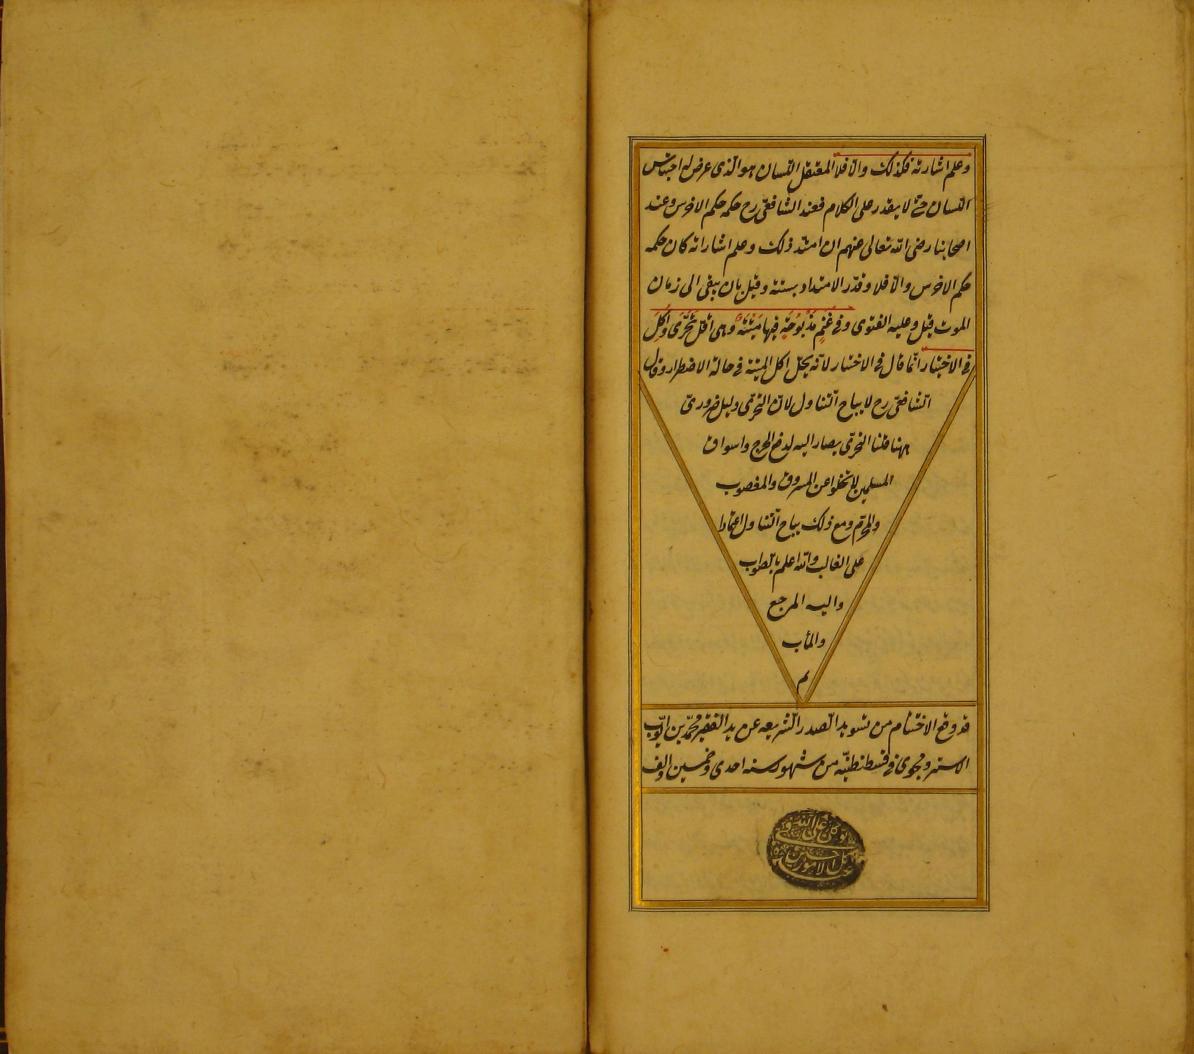 وعلم اشارته فكذلك والا فلا المعتقل اللسان هو الذى عرض له احتباس
اللسان حتى لا يقدر على الكلام فعند الشافعى رح حكمه حكم الاخرس وعند
اصحابنا رضى الله تعالى عنهم ان امتد ذلك وعلم اشاراته كان حكمه
حكم الاخرس والا فلا وقدر الامتداد بسنة وقيل بان يبقى الى زمان
الموت قيل وعليه الفتوى وفى غنم مذبوحة فيها ميتة وهى اقل تحرى واكل
فى الاختيار انما قال فى الاختيار لانه يحل اكل الميتة فى حالة الاضطرار وقال
الشافعى رح لا يباح التناول لان التحرى دليل ضرورى
ههنا قلنا التحرى يصار اليه لدفع الحرج واسواق
المسلمين لا تخلو عن المسروق والمغصوب
والمحرم ومع ذلك يباح التناول اعتمادا
على الغالب والله اعلم بالصواب
واليه المرجع
والمأب
تم
قد وقع الاختتام من تسويد الصدر الشريعه عن يد الفقير محمد بن ايوب
فى قسطنطنيه من شهور سنه احدى وخمسين والف